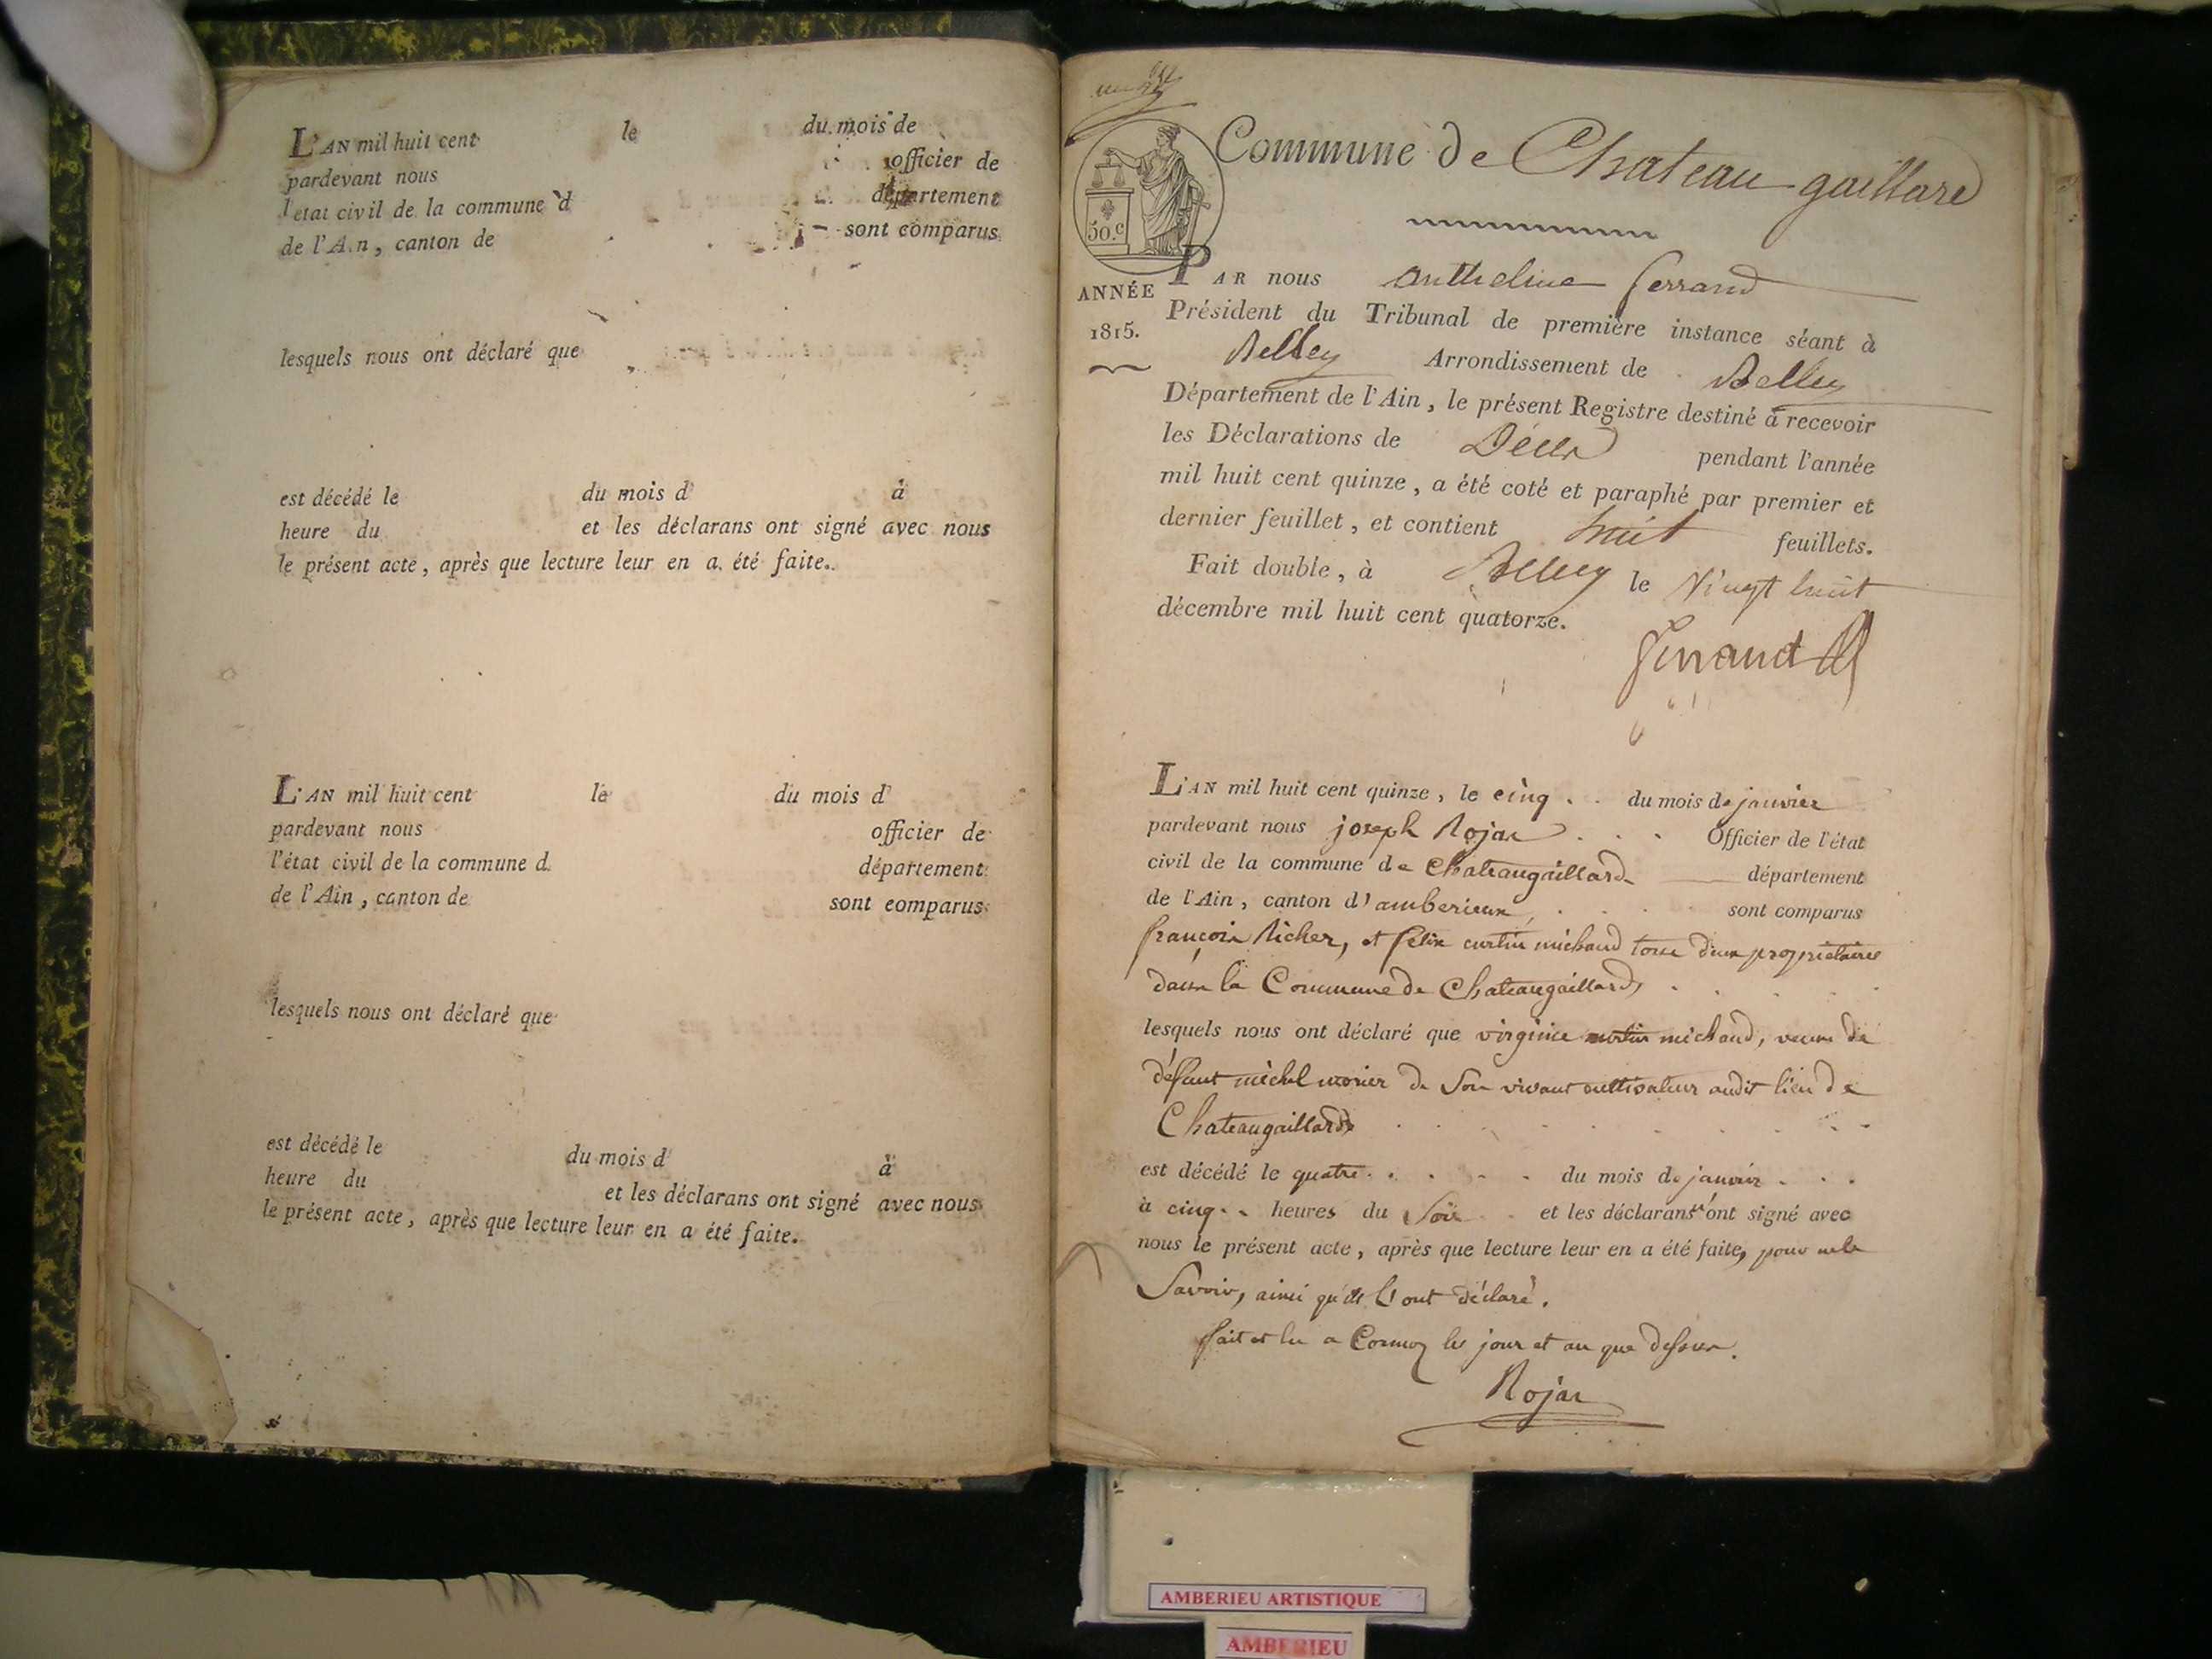 L'AN mil huit cent le du mois de
pardevant nous officier de
l'etat civil de la commune d département
de l'Ain, canton de sont comparus
lesquels nous ont déclaré que
est décédé le du mois d à
heure du et les déclarans ont signé avec nous
le présent acte, après que lecture leur en a été faite.
L'AN mil huit cent le du mois d
pardevant nous officier de
l'état civil de la commune d département
de l'Ain, canton de sont comparus
lesquels nous ont déclaré que
est décédé le du mois d à
heure du et les déclarans ont signé avec nous
le présent acte, après que lecture leur en a été faite.
Commune de Chateau gaillard
50.c
ANNÉE
1815.
PAR nous Anthelme Ferrand
Président du Tribunal de première instance séant à
Belley Arrondissement de Belley
Département de l'Ain, le présent Registre destiné à recevoir
les Déclarations de Décès pendant l'année
mil huit cent quinze, a été coté et paraphé par premier et
dernier feuillet, et contient huit feuillets.
Fait double, à Belley le Vingt huit
décembre mil huit cent quatorze.
Ferrand
L'AN mil huit cent quinze, le cinq du mois de janvier
pardevant nous joseph Rojas Officier de l'état
civil de la commune de Chateaugaillard département
de l'Ain, canton d'amberieux, sont comparus
françois Richer, et felix curtin michaud tous deux propriétaires
dans la Commune de Chateaugaillard,
lesquels nous ont déclaré que virginie michaud, veuve de
défunt michel morier de son vivant cultivateur audit lieu de
Chateaugaillard
est décédé le quatre du mois de janvier
à cinq heures du Soir et les déclarans ont signé avec
nous le présent acte, après que lecture leur en a été faite, pour ne le
Savoir, ainsi qu'ils l'ont déclaré.
fait et lu a Cormoz les jour et an que dessus.
Rojas
AMBERIEU ARTISTIQUE
AMBERIEU